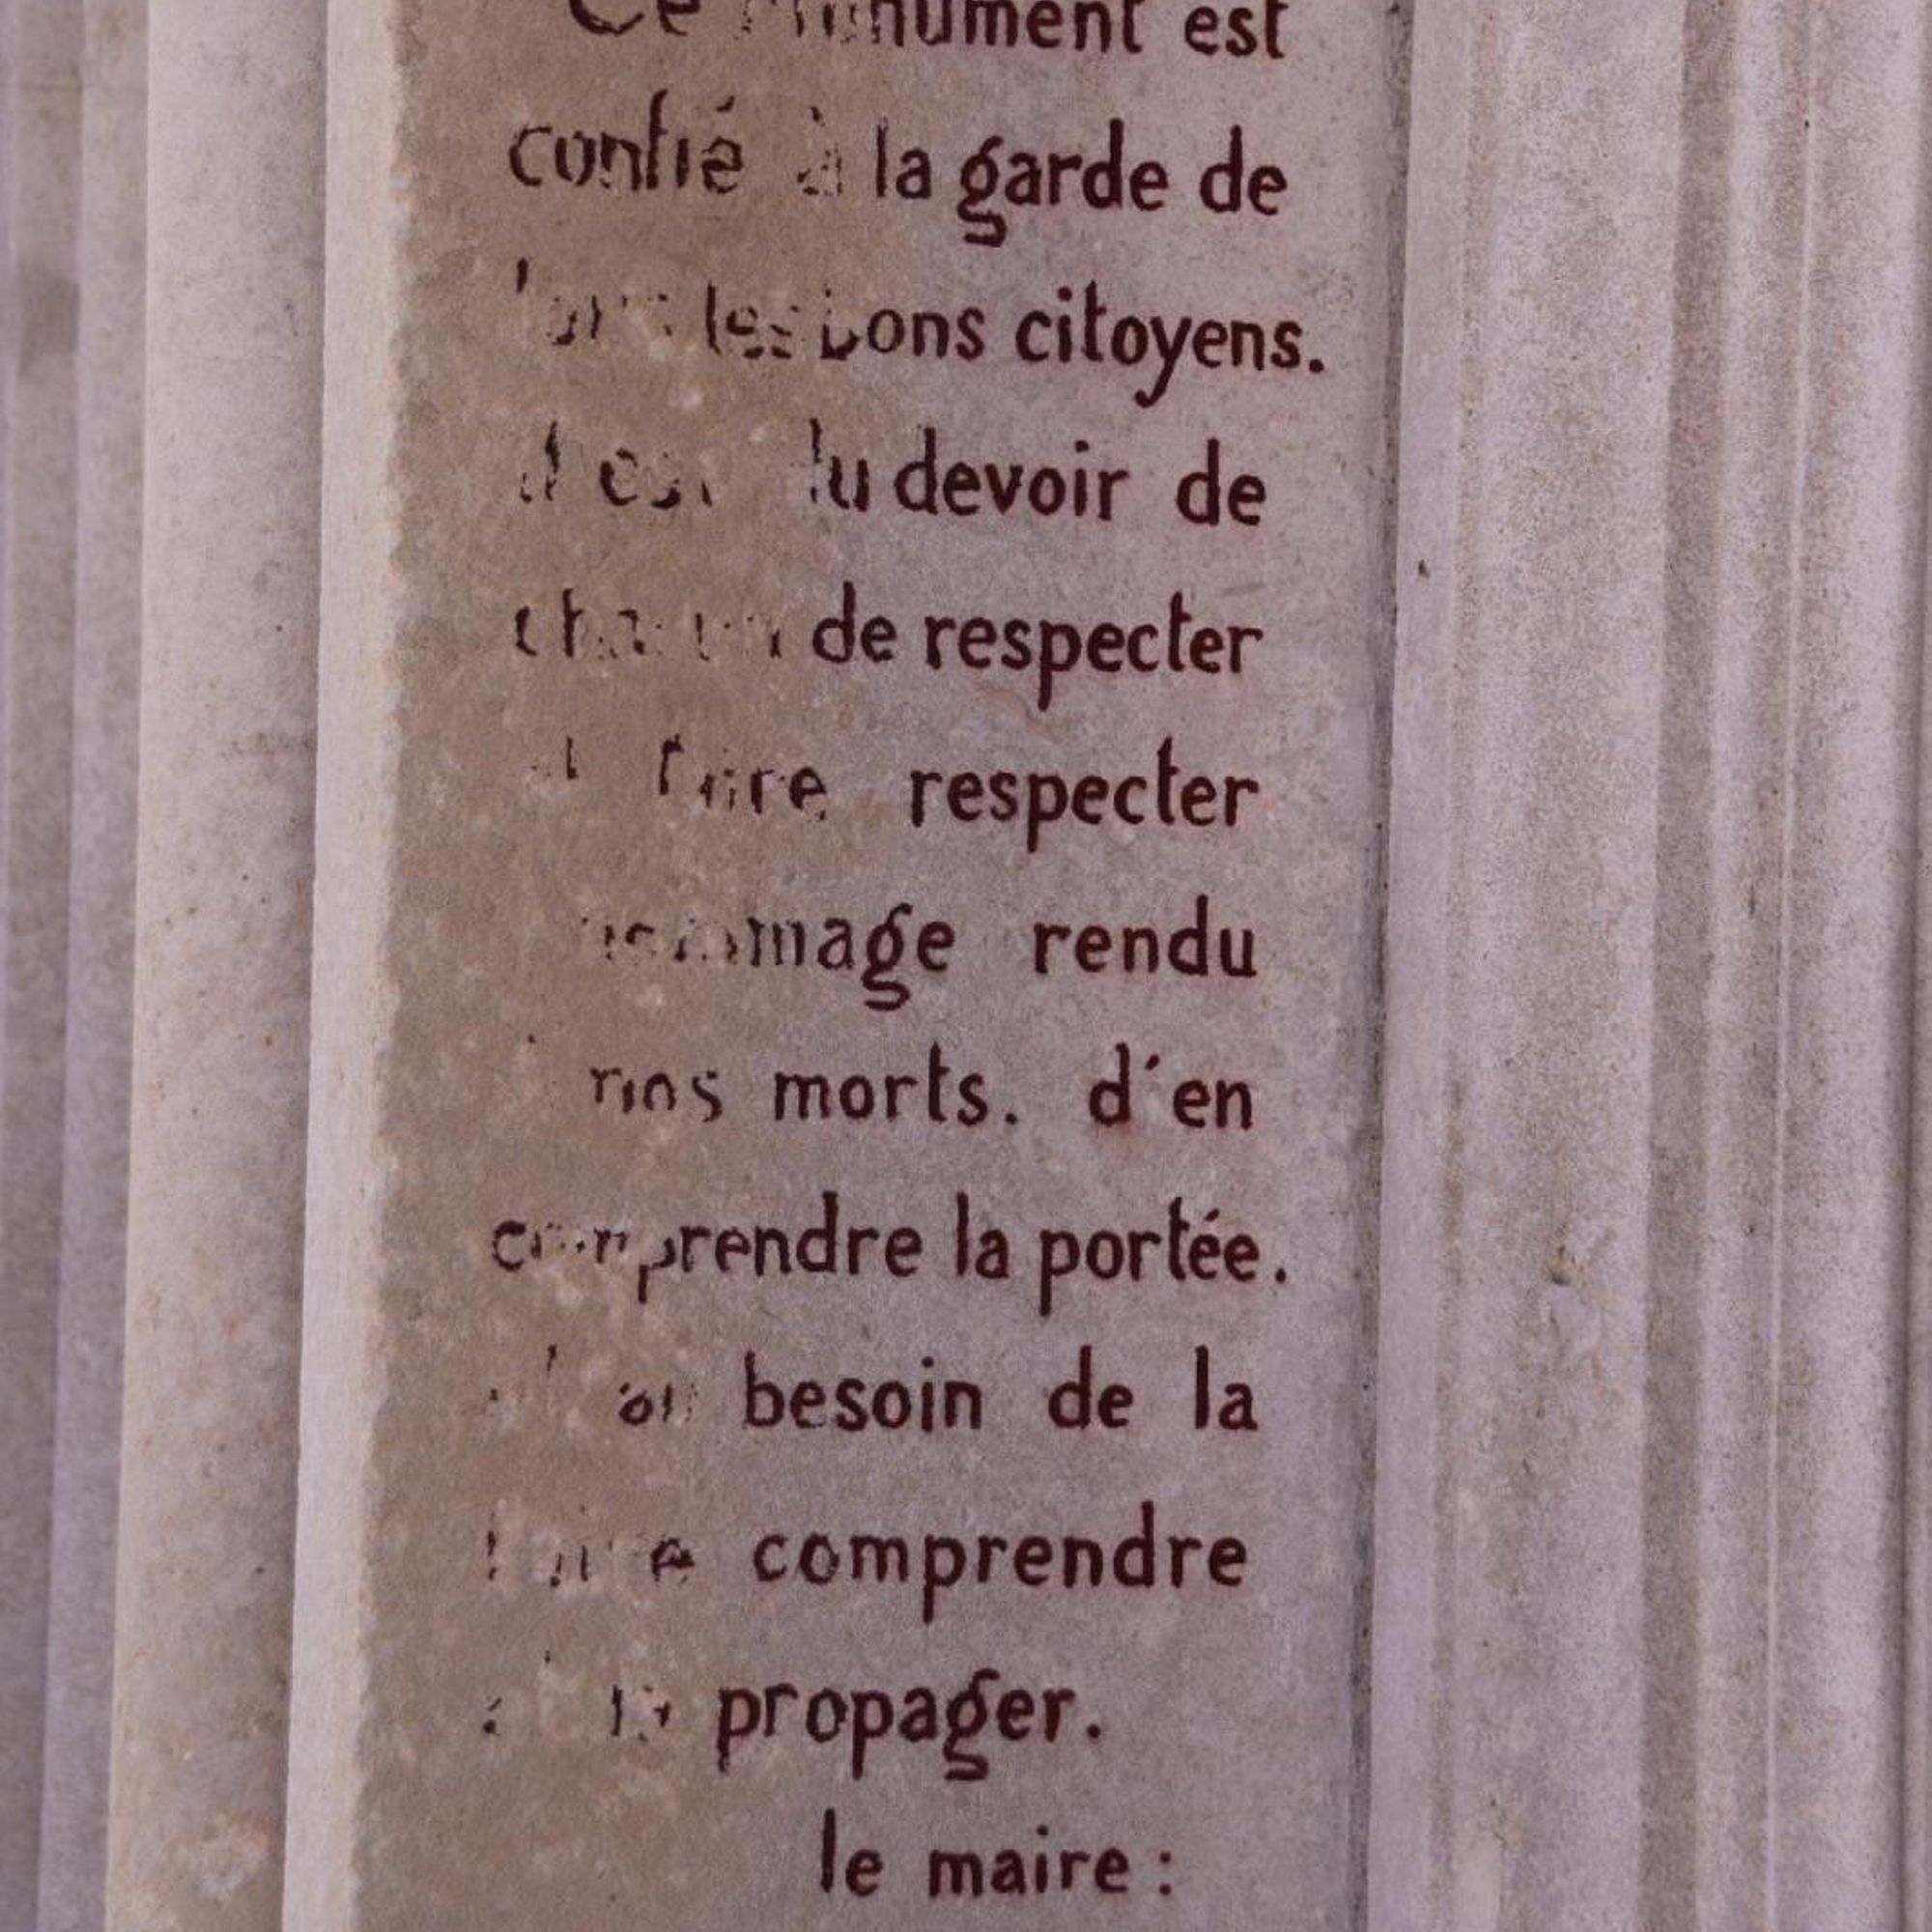 Ce monument est
confié à la garde de
tous les bons citoyens.
Il est du devoir de
chacun de respecter
et faire respecter
hommage rendu
nos morts. d'en
comprendre la portée.
besoin de la
faire comprendre
et la propager.
le maire :